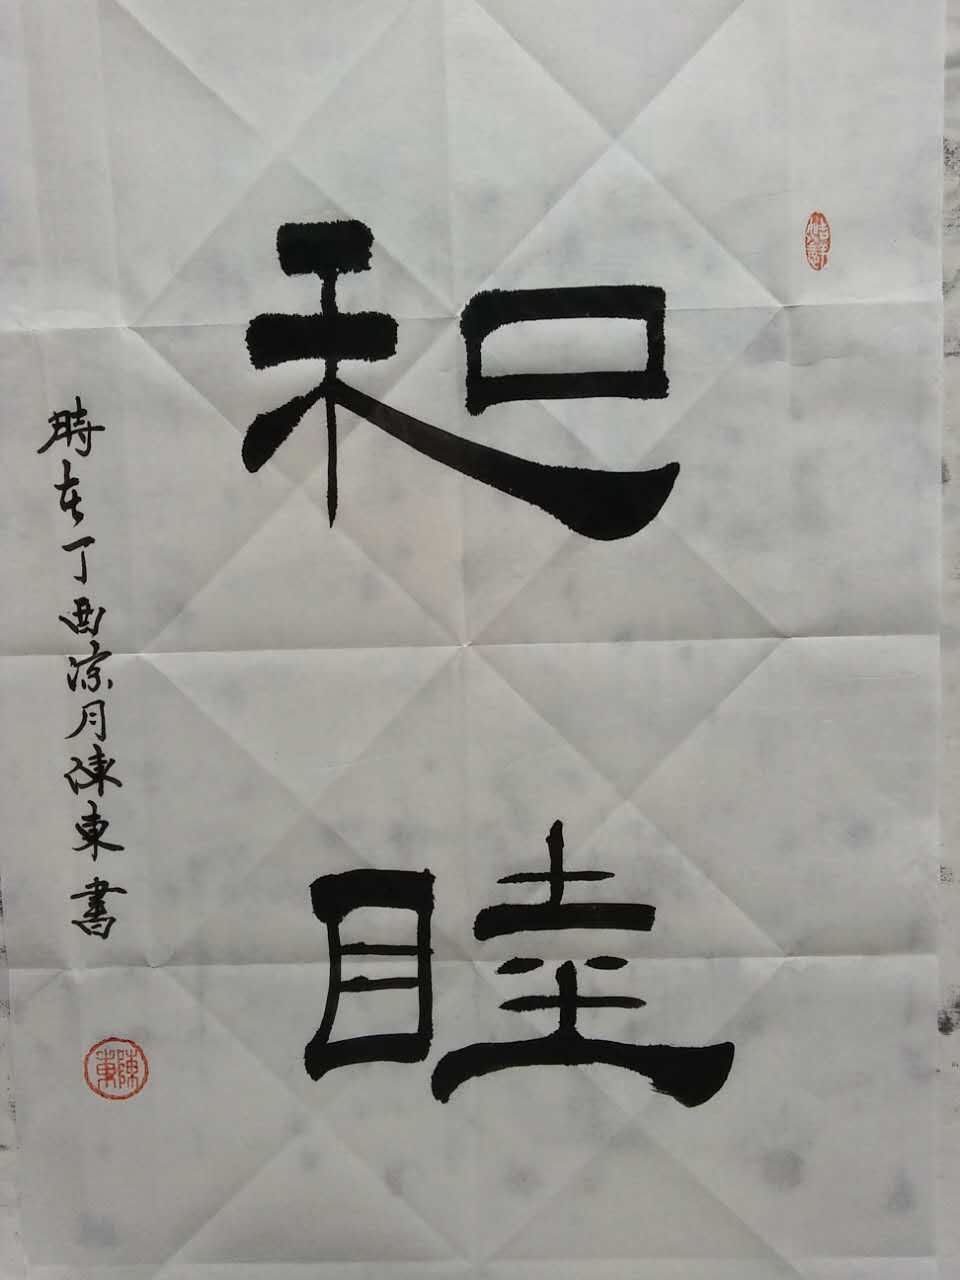 和睦
時在丁酉涼月陳東書
陳東